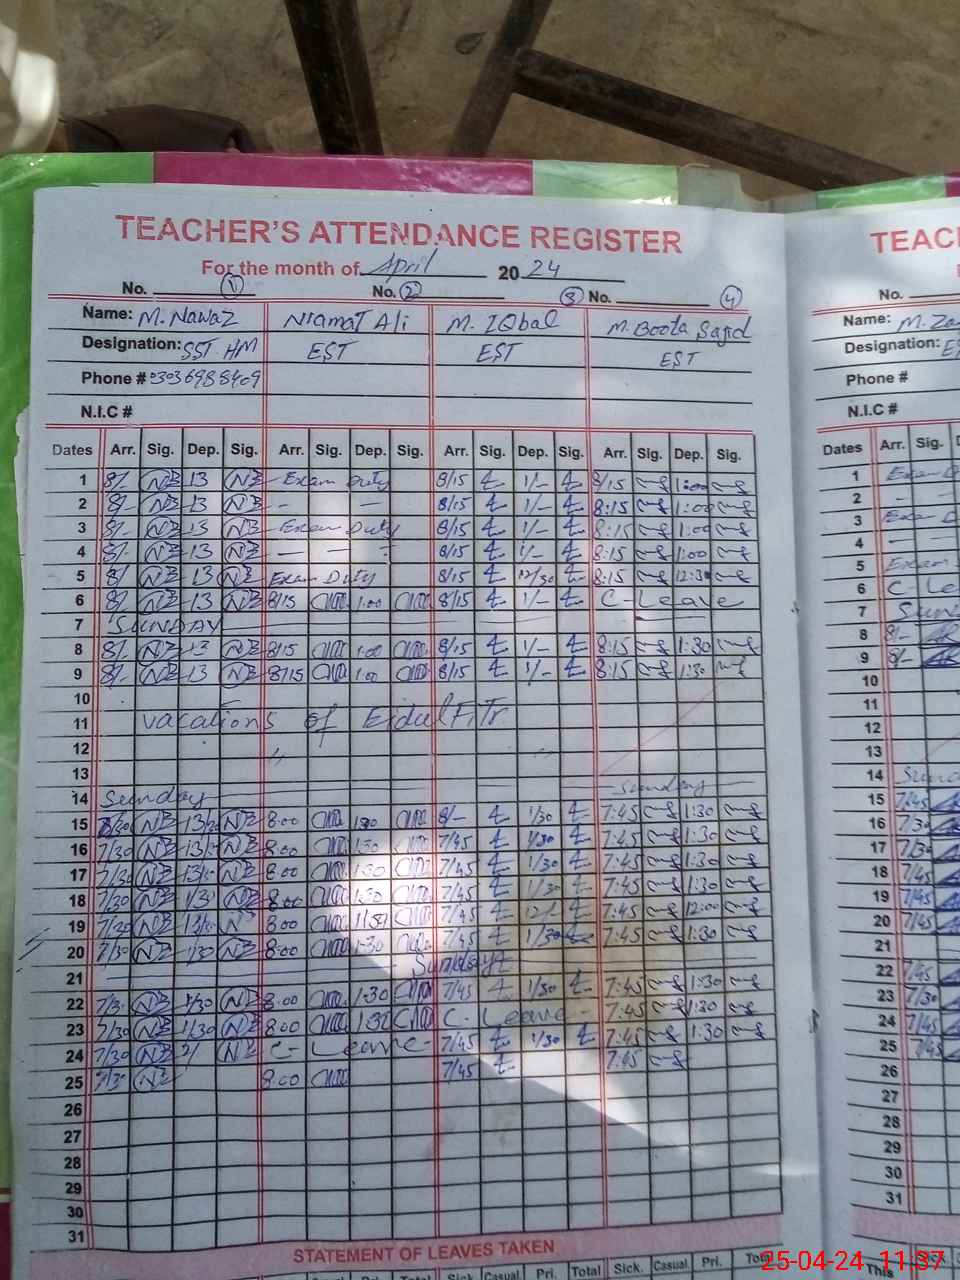 TEACHER'S ATTENDANCE REGISTER
For the month of April 2024
No. 1 No. 2 3 No. 4
Name: M. Nawaz Niamat Ali M. IQbal M. Boota Sajid
Designation: SST. HM EST EST EST
Phone #
N.I.C #
Dates Arr. Sig. Dep. Sig. Arr. Sig. Dep. Sig. Arr. Sig. Dep. Sig. Arr. Sig. Dep. Sig.
1 8/- NB 13 NB Exam Duty 8/15 1/- 8/15 1:00
2 8/- NB 13 NB - - 8/15 1/- 8:15 1:00
3 8/- NB 13 NB Exam Duty 8/15 1/- 8:15 1:00
4 8/- NB 13 NB - - - 8/15 1/- 8:15 1:00
5 8/ NB 13 NB Exam Duty 8/15 12/30 8:15 12:30
6 8/- NB 13 NB 8/15 1:00 8/15 1/- C-Leave
7 SUNDAY
8 8/- NB 13 NB 8/15 1:00 8/15 1/- 8:15 1:30
9 8/- NB 13 NB 8/15 1:00 8/15 1/- 8:15 1:30
10
11 vacations of EidulFiTr
12
13
14 Sunday Sunday
15 NB NB 8:00 8/- 1/30 7:45 1:30
16 7/30 NB NB 8:00 1:30 7/45 1/30 7:45 1:30
17 7/30 NB NB 8:00 1:30 7/45 1/30 7:45 1:30
18 7/30 NB NB 8:00 1:30 7/45 1/30 7:45 1:30
19 7/30 NB N 8:00 7/45 12/- 7:45 12:00
20 7/30 NB 1/30 NB 8:00 1:30 7/45 1/30 7:45 1:30
21 Sunday
22 7/30 NB 1/30 NB 8:00 1:30 7/45 1/30 7:45 1:30
23 7/30 NB 1/30 NB 8:00 C-Leave- 7:45 1:30
24 7/30 NB NB C-Leave- 7/45 1/30 7:45 1:30
25 7/30 NB 8:00 7/45 7:45
26
27
28
29
30
31
STATEMENT OF LEAVES TAKEN
Sick Casual Pri. Total Sick. Casual Pri. Total
TEAC
No.
Name: M. Za
Designation: ES
Phone #
N.I.C #
Dates Arr. Sig.
1 Exam D
2
3 Exam D
4
5 Exam
6 C-Lea
7 Sund
8 8/-
9 8/-
10
11
12
13
14 Sund
15 7:45
16 7/30
17 7/30
18 7/45
19 7/45
20 7/45
21
22 7/45
23 7/30
24 7/45
25 7/45
26
27
28
29
30
31
This Sick
25-04-24 11:37